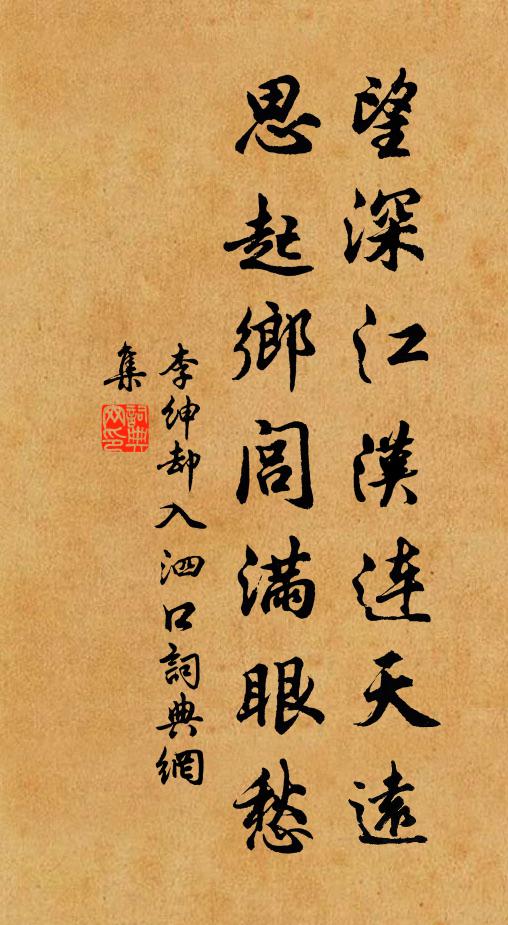 望深江漢連天遠
思起鄉閭滿眼愁
李紳却入泗口詞典網
集
詞典
網印